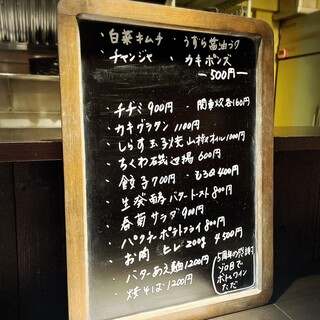 ・白菜キムチ ・うずら醤油ラク
・チャンジャ ・カキポンズ
―500円―
・チヂミ 900円 ・関東炊各160円
・カキグラタン 1100円
・しらす玉子焼 山椒オイル1000円
・ちくわ磯辺揚 600円
・餃子700円 ・もろQ 400円
・生発酵バタートースト800円
・春菊サラダ900円
・パクチーポテトフライ 800円
・お肉 ヒレ200g 4500円
・バターあえ麺1200円
・焼そば1200円
5周年の感謝
ゾロ目で
ボトルワイン
ただ